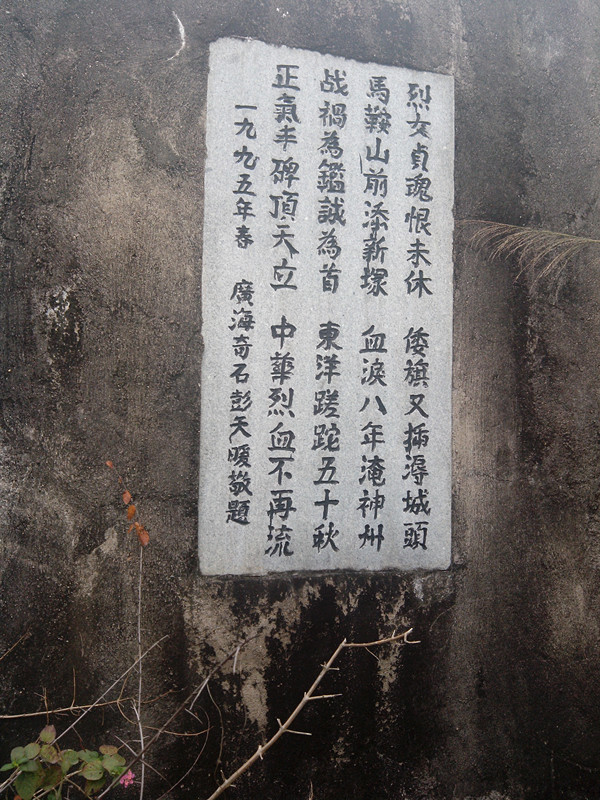 烈女貞魂恨未休 倭旗又插潯城頭
馬鞍山前添新塚 血淚八年淹神州
战禍為鑑誠為首 東洋蹉跎五十秋
正氣丰碑頂天立 中華烈血不再流
一九九五年春 廣海奇石彭天暖敬題